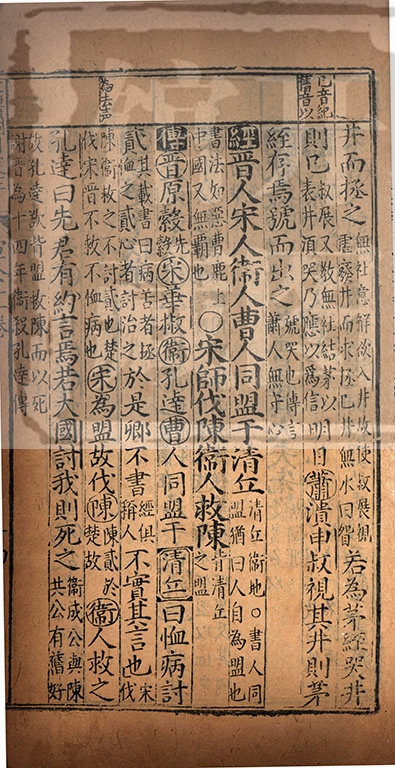 已音紀
井而拯之無社意解欲入井故使叔展視
虛廢井而求拯己井無水曰眢若為茅絰哭井
則已叔展又教無社結茅以
表井須哭乃應以為信明日蕭潰申叔視其井則茅
絰存焉號而出之號哭也傳言
蕭人無守心
經晉人宋人衛人曹人同盟于清丘清丘衛地○書人同
盟猶曰人自為盟也
書法如惡曹鹿上
中國又無霸也○宋師伐陳衛人救陳背清丘
之盟
傳晉原縠先
縠宋華椒衛孔達曹人同盟于清丘曰恤病討
貳其載書曰病苦者拯
恤之貳心者討治之於是卿不書經俱
稱人不實其言也宋
伐
陳衛救之不討貳也楚
伐宋晉不救不恤病也宋為盟故伐陳陳貳於
楚故衛人救之
孔達曰先君有約言焉若大國討我則死之衛成公與陳
共公有舊好
故孔達欲背盟救陳而以死
謝晉為十四年衛殺孔達傳